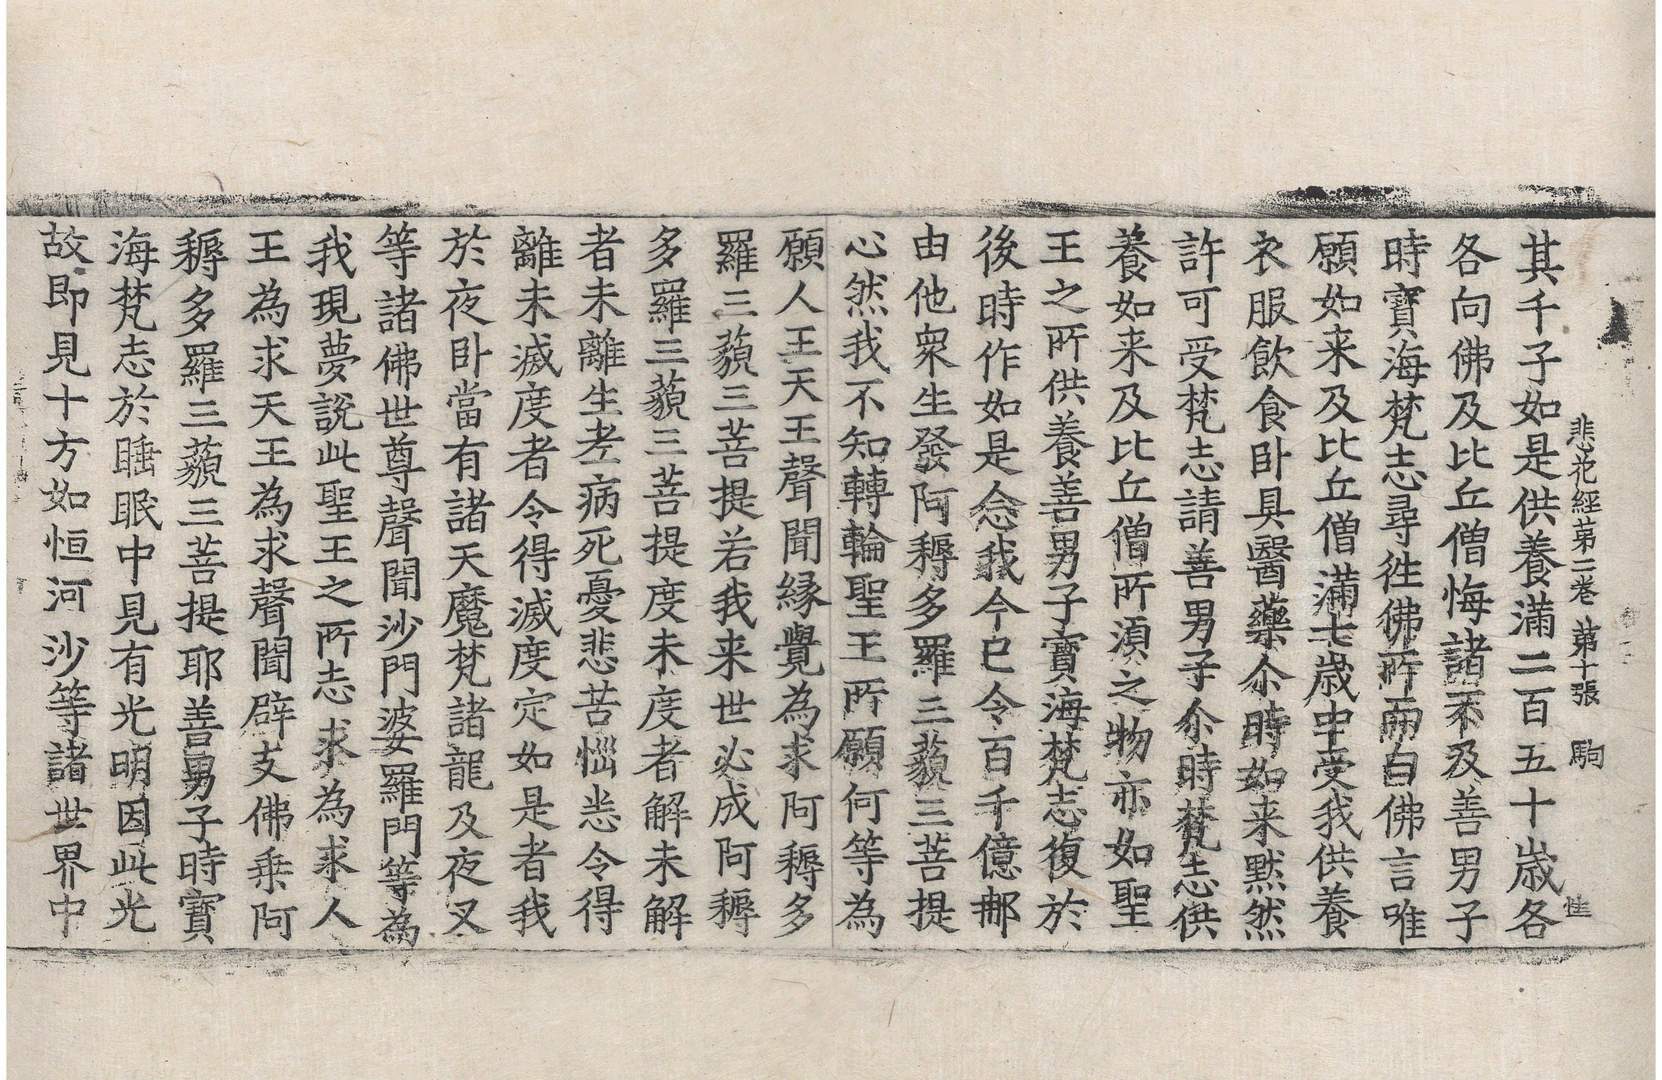 悲花經苐二卷 苐十張 駒
其千子如是供養滿二百五十歲各
各向佛及比丘僧悔諸不及善男子
時寶海梵志尋徃佛所而白佛言唯
願如来及比丘僧滿七歲中受我供養
衣服飲食卧具醫藥尒時如来默然
許可受梵志請善男子尒時梵志供
養如来及比丘僧所湏之物亦如聖
王之所供養善男子寶海梵志復於
後時作如是念我今已令百千億那
由他衆生發阿耨多羅三藐三菩提
心然我不知轉輪聖王所願何等為
願人王天王聲聞緣覺為求阿耨多
羅三藐三菩提若我来世必成阿耨
多羅三藐三菩提度未度者解未解
者未離生老病死憂悲苦惱悉令得
離未滅度者令得滅度定如是者我
於夜卧當有諸天魔梵諸龍及夜叉
等諸佛世尊聲聞沙門婆羅門等為
我現夢說此聖王之所志求為求人
王為求天王為求聲聞辟支佛乘阿
耨多羅三藐三菩提耶善男子時寶
海梵志於睡眠中見有光明因此光
故即見十方如恒河沙等諸世界中